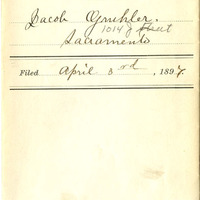 Jacob Gmehler.
1014 J Street
Sacramento
Filed April 3rd, 1897.